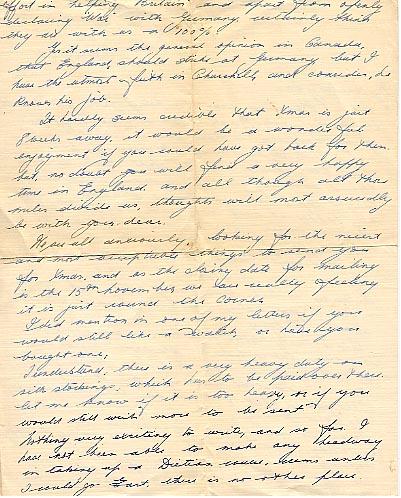 effort in helping Britain and apart from openly
declaring War with Germany certainly think
they are with us a 100%
It seems the general opinion in Canada,
that England, should strike at Germany but I
have the utmost faith in Churchill, and consider, he
knows his job.
It hardly seems credible that Xmas is just
8 weeks away, it would be a wonderful
enjoyment if you could have got back for then.
but, no doubt you will find a very happy
time in England. and all though all those
miles divide us, thoughts will most assuredly
be with you dear.
We are all anxiously looking for the nicest
and most acceptable things to send you
for Xmas, and as the closing date for mailing
is the 15th November, we are really speaking
it is just round the corner
I did mention in one of my letters if you
would still like a watch, or have you
bought one,
I understand, there is a very heavy duty on
silk stockings, which has to be paid over there.
let me know if it is too heavy, or if you
would still wish more to be sent
Nothing very exciting to write, and so far. I
had not been able to make any headway
in taking up a Dietian course, seems unless
I could go East, there is no other place.